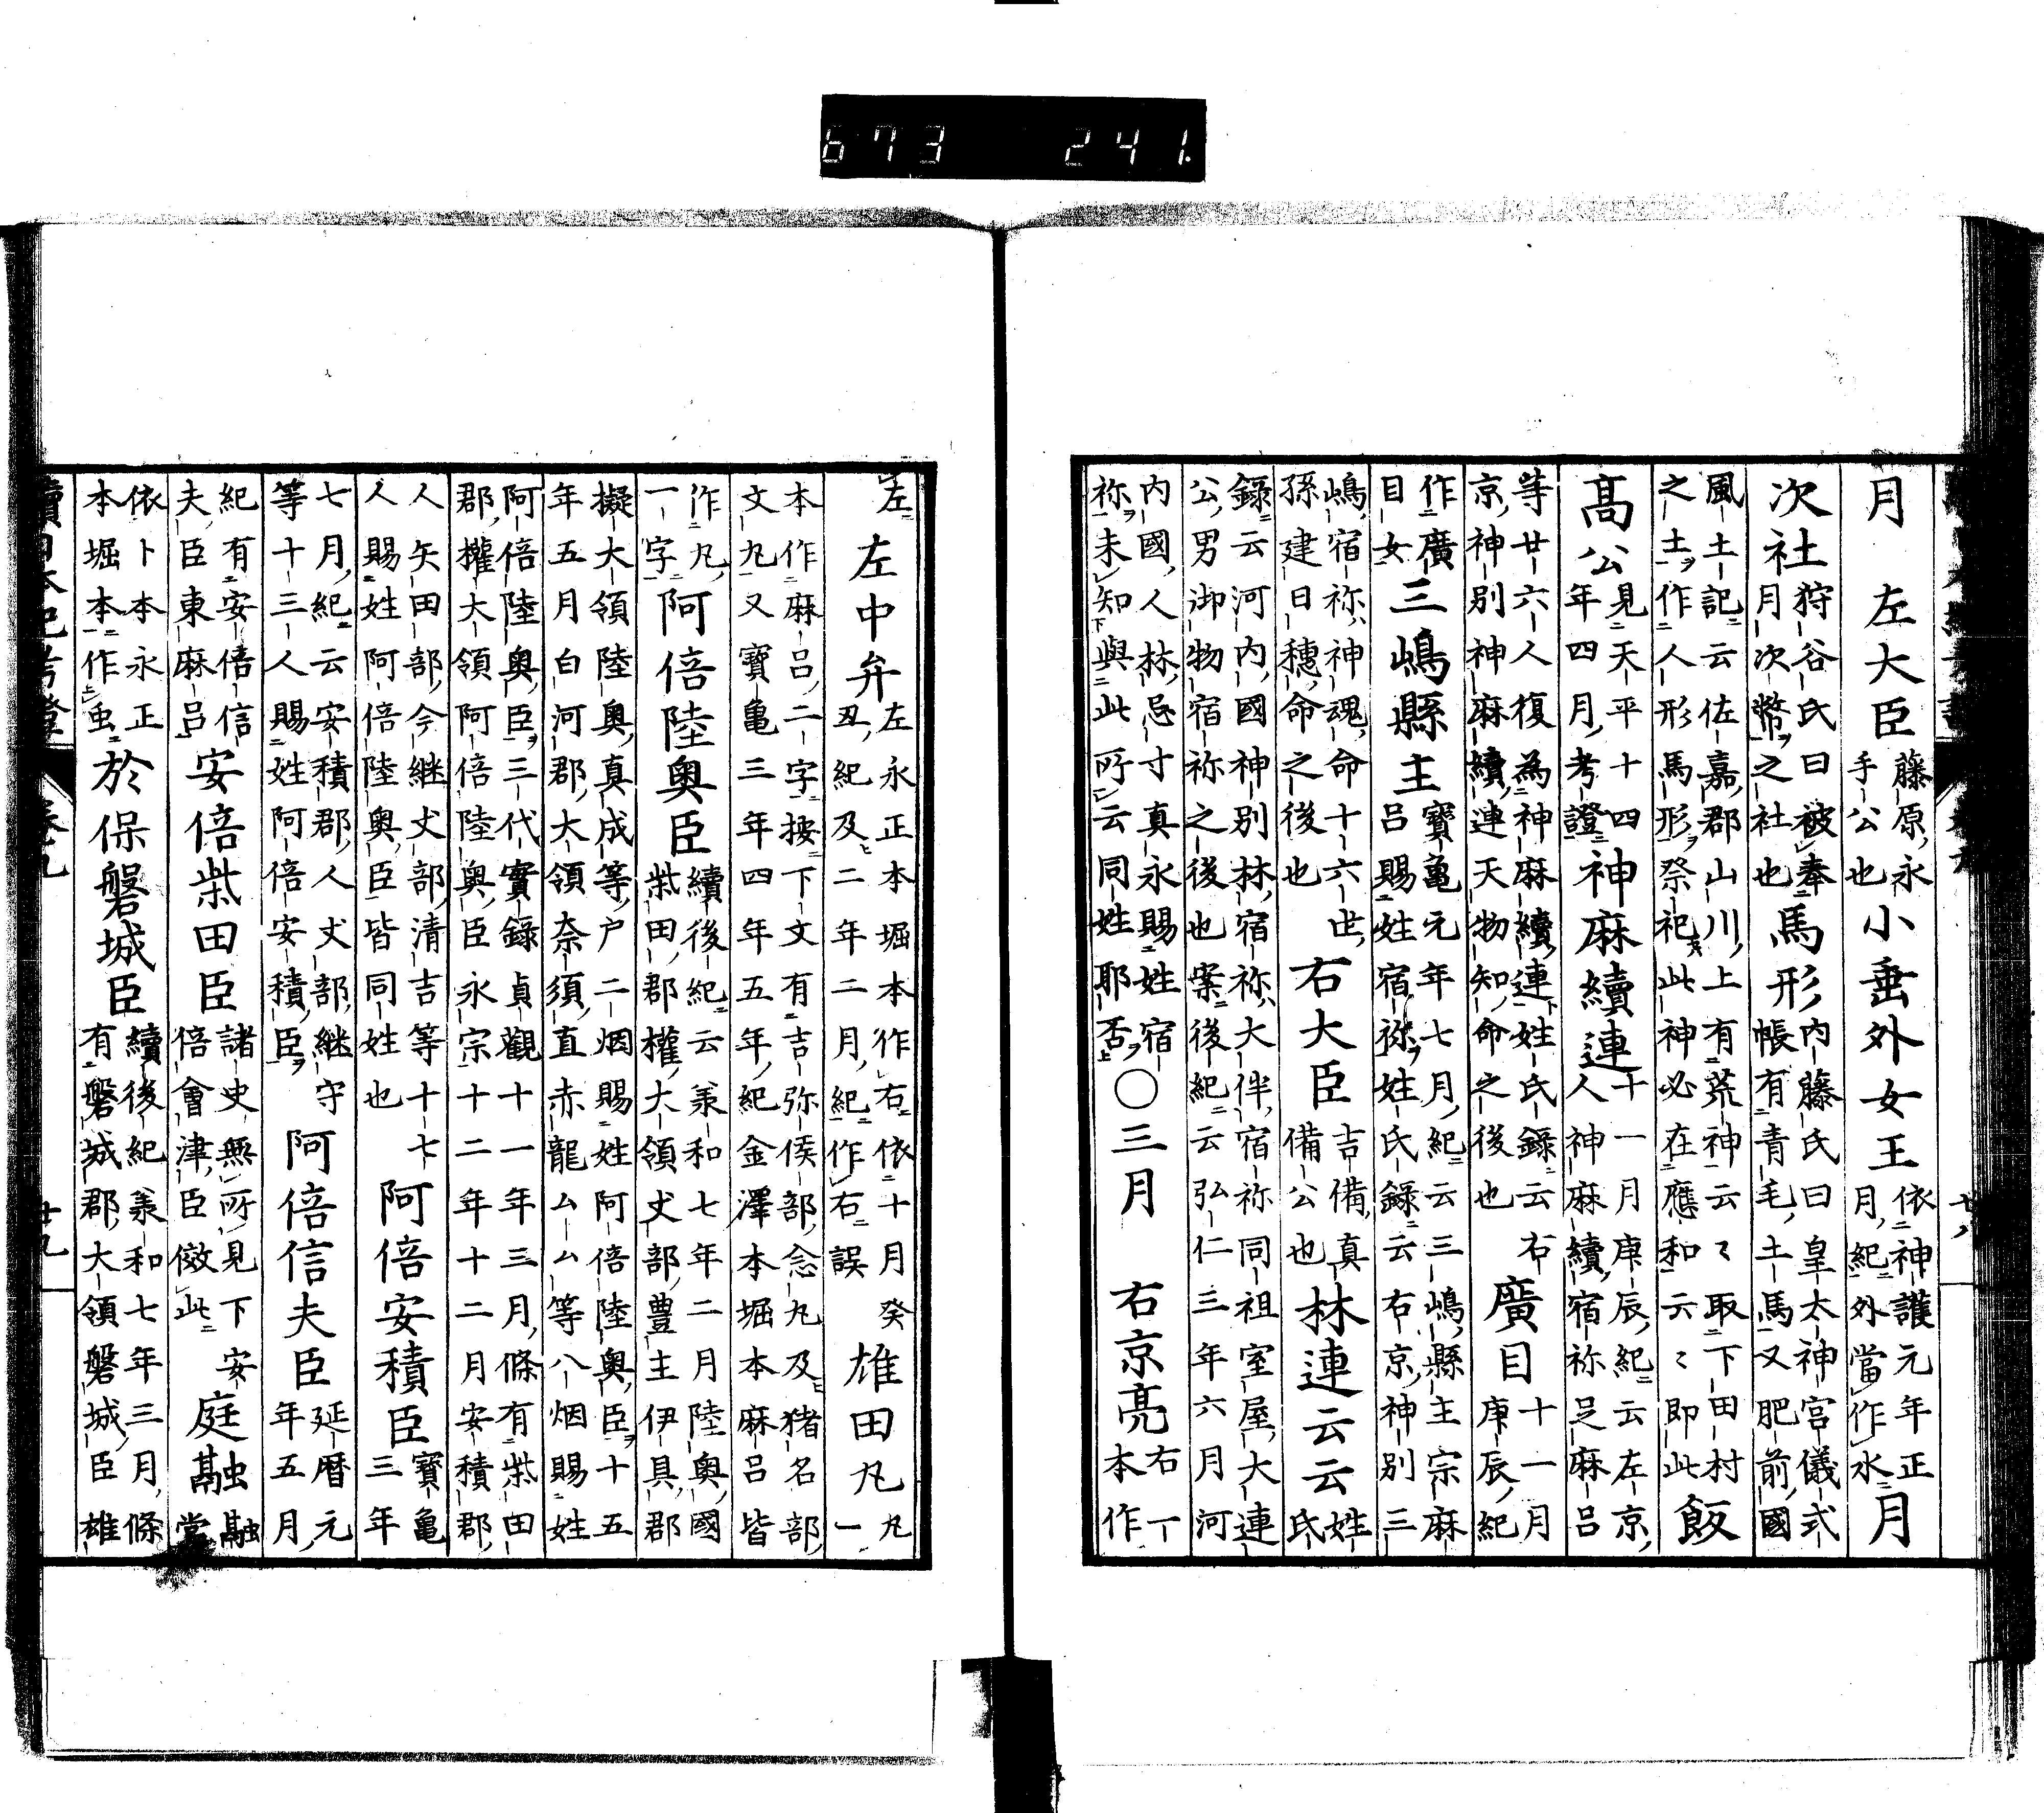 673 241.
月　左大臣 藤原永手公也 小垂外女王 依神護元年正月紀外當作水 月
次社 狩谷氏曰被奉月次幣之社也 馬形 内藤氏曰皇太神宮儀式帳有青毛土馬又肥前國
風土記云佐嘉郡山川上有荒神云々取下田村之土作人形馬形祭祀此神必在應和云々即此 飯
高公 見天平十四年四月考證 神麻續連 十一月庚辰紀云左京人神麻續宿祢足麻呂
等廿六人復為神麻續連姓氏錄云右京神別神麻續連天物知命之後也 廣目 十一月庚辰紀
作廣目女 三嶋縣主 寶亀元年七月紀云三嶋縣主宗麻呂賜姓宿祢姓氏錄云右京神別三
嶋宿祢神魂命十六世孫建日穗命之後也 右大臣 吉備真備公也 林連云云 姓氏
錄云河内國神別林宿祢大伴宿祢同祖室屋大連公男御物宿祢之後也案後紀云弘仁三年六月河
内國人林忌寸真永賜姓宿祢未知與此所云同姓耶否 〇三月　右京亮 右一本作
左 左中弁 左永正本堀本作右依十月癸丑紀及二年二月紀作右誤 雄田丸 丸一
本作麻呂二字按下文有吉弥侯部念丸及猪名部文丸又寶亀三年四年五年紀金澤本堀本麻呂皆
作丸一字 阿倍陸奥臣 續後紀云義和七年二月陸奥國柴田郡權大領丈部豊主伊具郡
擬大領陸奥真成等户二烟賜姓阿倍陸奥臣十五年五月白河郡大領奈須直赤龍ムム等八烟賜姓
阿倍陸奥臣三代實錄貞觀十一年三月條有柴田郡權大領阿倍陸奥臣永宗十二年十二月安積郡
人矢田部今継丈部清吉等十七人賜姓阿倍陸奥臣皆同姓也 阿倍安積臣 寶亀三年
七月紀云安積郡人丈部継守等十三人賜姓阿倍安積臣 阿倍信夫臣 延暦元年五月
紀有安倍信夫臣東麻呂 安倍柴田臣 諸史無所見下安倍會津臣傚此 庭融 融當
依卜本永正本堀本作虫 於保磐城臣 續後紀義和七年三月條有磐城郡大領磐城臣雄